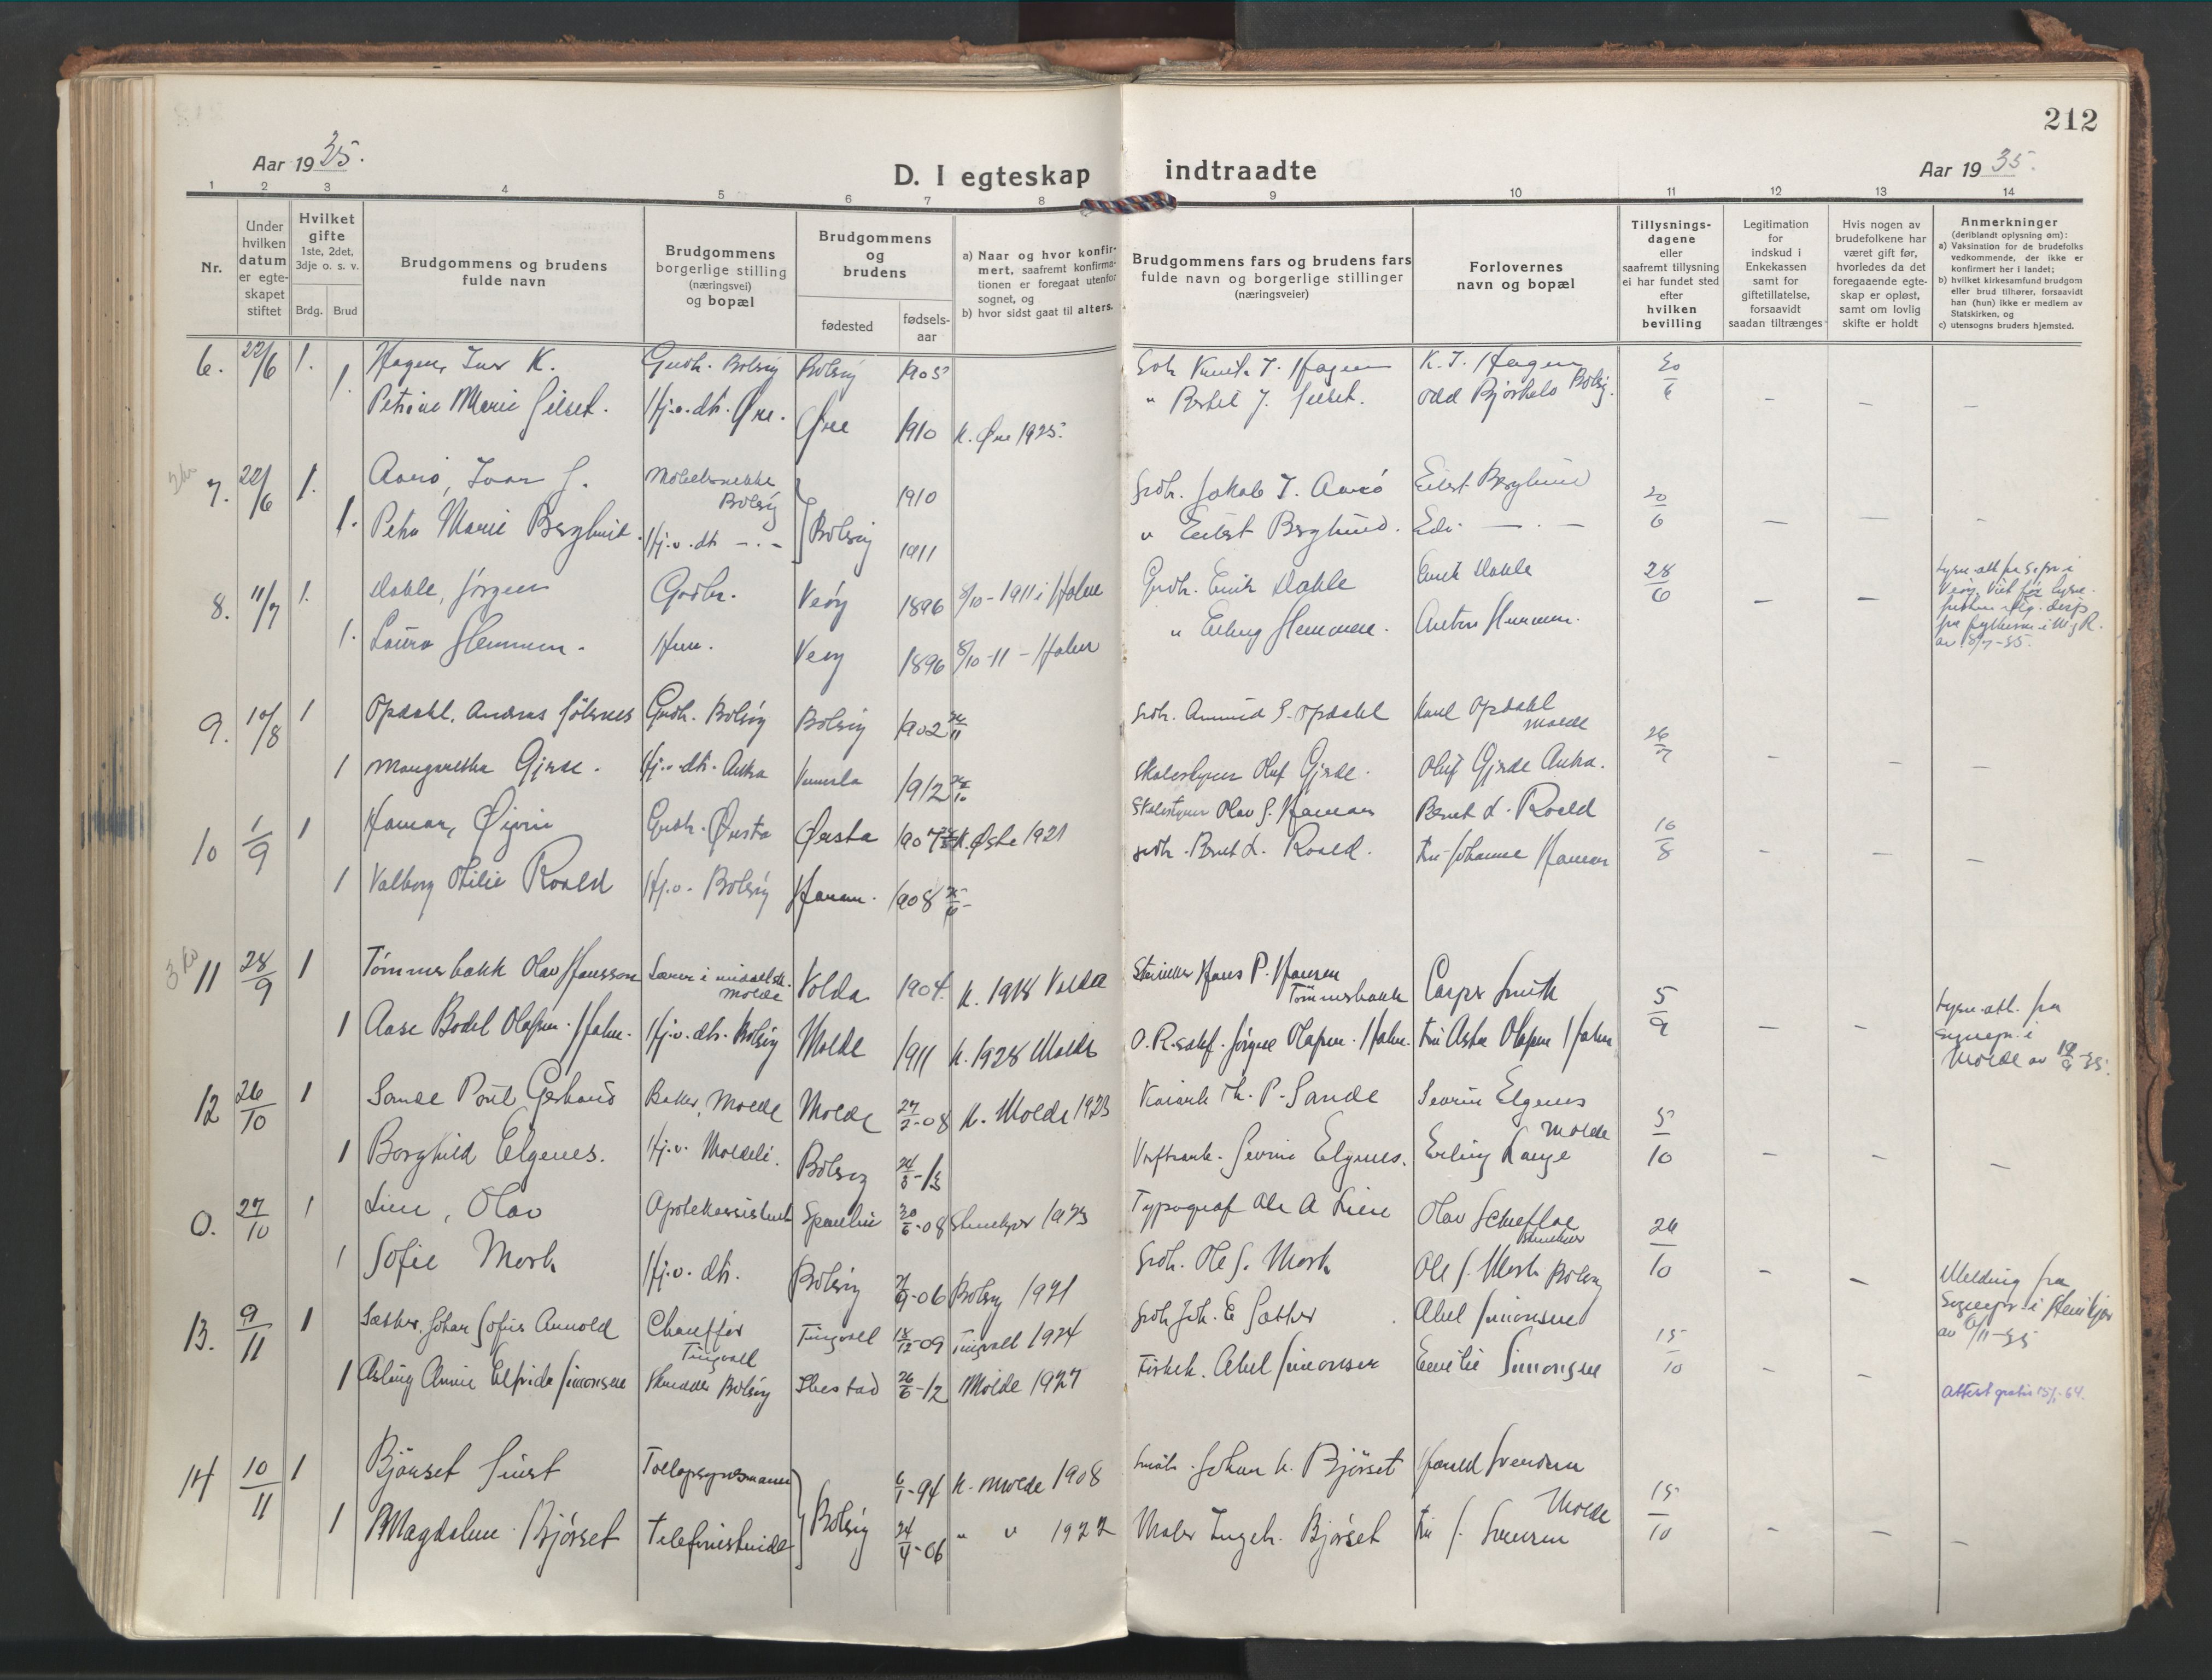 212
Aar 1935.
D. I egteskap indtraadte
Aar 1935.
1 2 3 4 5 6 7 8 9 10 11 12 13 14
Nr.
Under hvilken datum er egte-skapet stiftet
Hvilket gifte
1ste, 2det, 3dje o. s. v.
Brdg. Brud
Brudgommens og brudens fulde navn
Brudgommens borgerlige stilling (næringsvei) og bopæl
Brudgommens og brudens
fødested
fødsels-aar
a) Naar og hvor konfir-mert, saafremt konfirma-tionen er foregaat utenfor sognet, og
b) hvor sidst gaat til alters.
Brudgommens fars og brudens fars fulde navn og borgerlige stillinger (næringsveier)
Forlovernes navn og bopæl
Tillysnings-dagene eller saafremt tillysning ei har fundet sted efter hvilken bevilling
Legitimation for indskud i Enkekassen samt for giftetillatelse, forsaavidt saadan tiltrænges
Hvis nogen av brudefolkene har været gift før, hvorledes da det foregaaende egte-skap er opløst, samt om lovlig skifte er holdt
Anmerkninger
(deriblandt oplysning om):
a) Vaksination for de brudefolks vedkommende, der ikke er konfirmert her i landet;
b) hvilket kirkesamfund brudgom eller brud tilhører, forsaavidt han (hun) ikke er medlem av Statskirken, og
c) utensogns bruders hjemsted.
6. 22/6 1. Hagen, Iver K. Gudbr. Bolsøy Bolsøy 1905 Gbr. Knut J. Hagen K. J. Hagen 20/6
1. Petrine Marie Silset. Hj.v.dtr. Øre. Øre 1910 K. Øre 1925. " Bertel J. Silset. Odd Bjørkelo Bolsøy. - - -
7. 22/6 1. Aarø, Ivar J. Møbelsnekker Bolsøy 1910 Grdbr. Jakob I. Aarø Eilert Berglund 20/6
1. Petra Marie Berglund. Hj.v.dtr. -.- Bolsøy 1911 " Eilert Berglund. - . - - - -
8. 11/7 1. Dahle, Jørgen Grdbr. Veøy 1896 8/10-1911 i Holm Grdbr. Erik Dahle Enok Dahle 28/6 - -
1. Laura Hemnen. Hun. Veøy 1896 8/10-11 - Holm " Erling Hemnen. Anton Hemnen.
9. 10/8 1 Opdahl, Andreas Grdbr. Bolsøy Bolsøy 1902 Grdbr. Amund S. Opdahl Karl Opdahl Molde 26/7
1 Margaretha Gjerde. Hj.v.dtr. Aukra 1912 Skolestyrer Oluf Gjerde. Oluf Gjerde Aukra. - - -
10 1/9 1 Hamar, Øivin Grdbr. Ørsta Ørsta 1907 Skolestyrer Olav S. Hamar Bernt L. Roald 16/8
1 Valborg Otilie Roald Hj.v. Bolsøy Haram. 1908 Grdbr. Bernt L. Roald. Fru Johanne Hamar - - -
3 kr 11 28/9 1 Tømmerbakk Olav Hansson Lærer i middelsk. Molde Volda 1904. K. 1918 Volda Hans P. Hansen Tømmerbakk Casper Smith 5/9
1 Aase Bodil Olafsen-Holm. Hj.v.dtr. Bolsøy Molde 1911 K. 1928 Molde O.R.sakf. Jørgen Olafsen-Holm. Fru Asta Olafsen Holm - -
Lysn.att. fra Sognepr. i Molde
12 26/10 1 Sande Poul Gerhard Baker, Molde Molde 27/2-08 K. Molde 1923 P. Sande Severin Elgenes Molde 5/10
1 Borghild Elgenes. Hj.v. Moldeli. Bolsøy 24/3-13 Severin Elgenes. Erling Lange - - -
0. 27/10 1 Lien, Olav Apotekassistent 20/6-08 Steinkjer 1923 Typograf Ole A Lien Olav 26/10
1 Sofie Mork Hj.v. dtr. Bolsøy -06 Bolsøy 1921 Grdbr. Ole J. Mork Ole J. Mork Bolsøy - -
Melding fra Sognepr. i Steinkjer av 6/11-35
13. 9/11 1 Sæther, Johan Sofus Arnold Chauffør Tingvoll Tingvoll 18/12-09 Tingvoll 1924 Grdbr. Joh. E Sæther Abel Simonsen 15/10
1 Aslaug Annie Elfrida Simonsen Bolsøy Ibestad 26/6-12 Molde 1927 Abel Simonsen Emilie Simonsen - -
Attest gratis 15/1-64.
14 10/11 1 Bjørset Sivert Tollopsynsmann 6/1-94 K. Molde 1908 Johan K. Bjørset Harald Svendsen Molde 15/10
1 Magdalene Bjørset Telefonistinde Bolsøy 24/4-06 " " 1922 Maler Ingebr. Bjørset Fru S. Svensen - - -